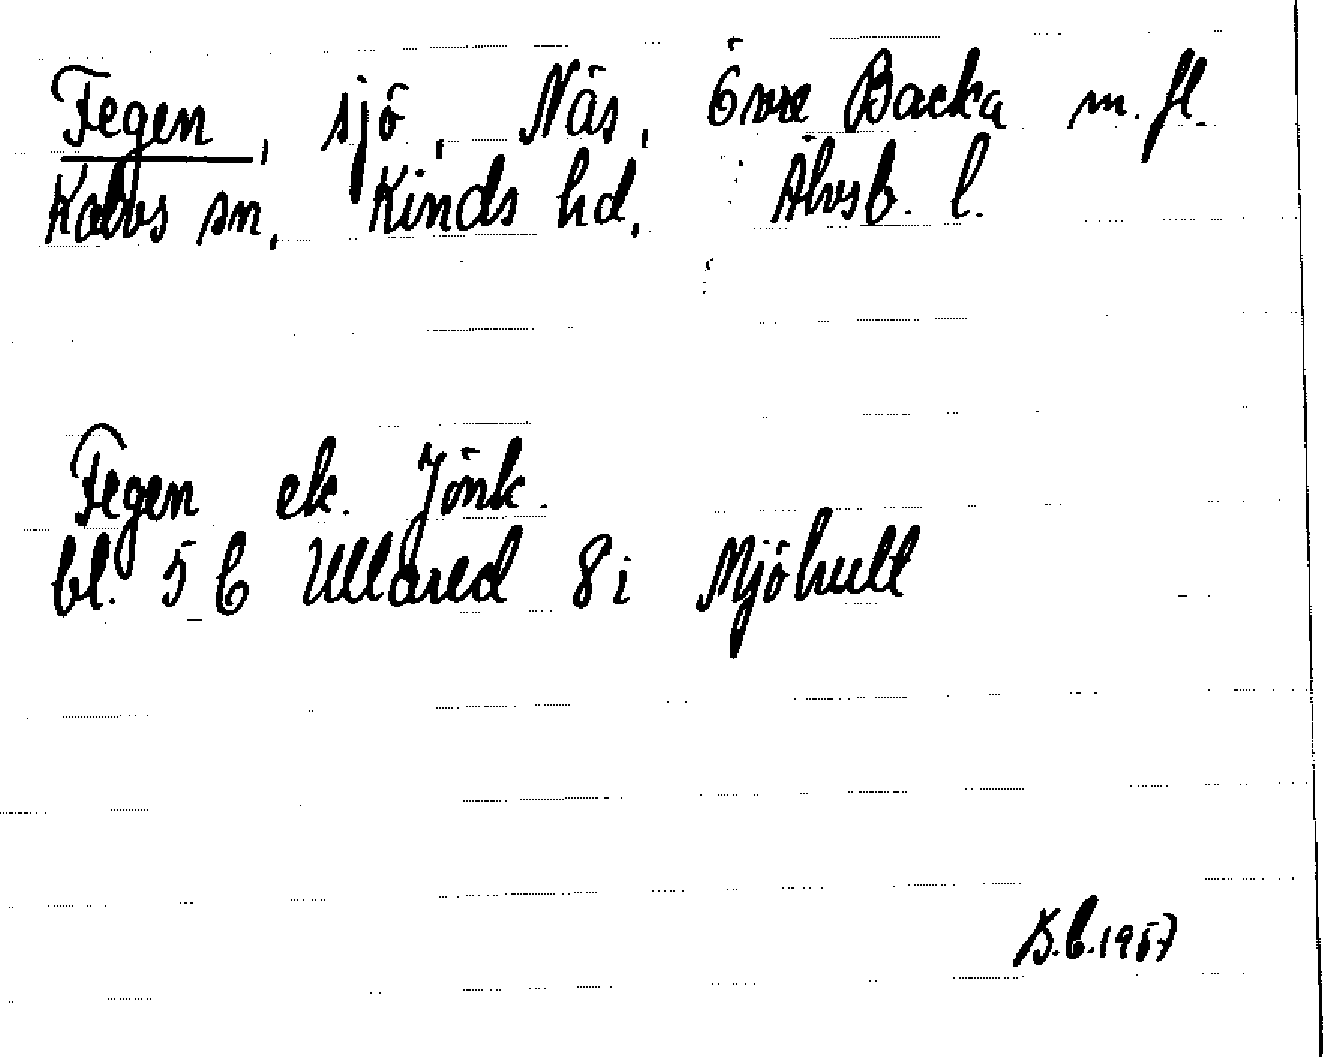 Fegen, sjö, Näs, Övre Backa m. fl.
Kalvs sn, Kinds hd, Älvsb. l.
Fegen ek. Jönk.
bl. 5 C Ullared 8i Mjöhult
1957